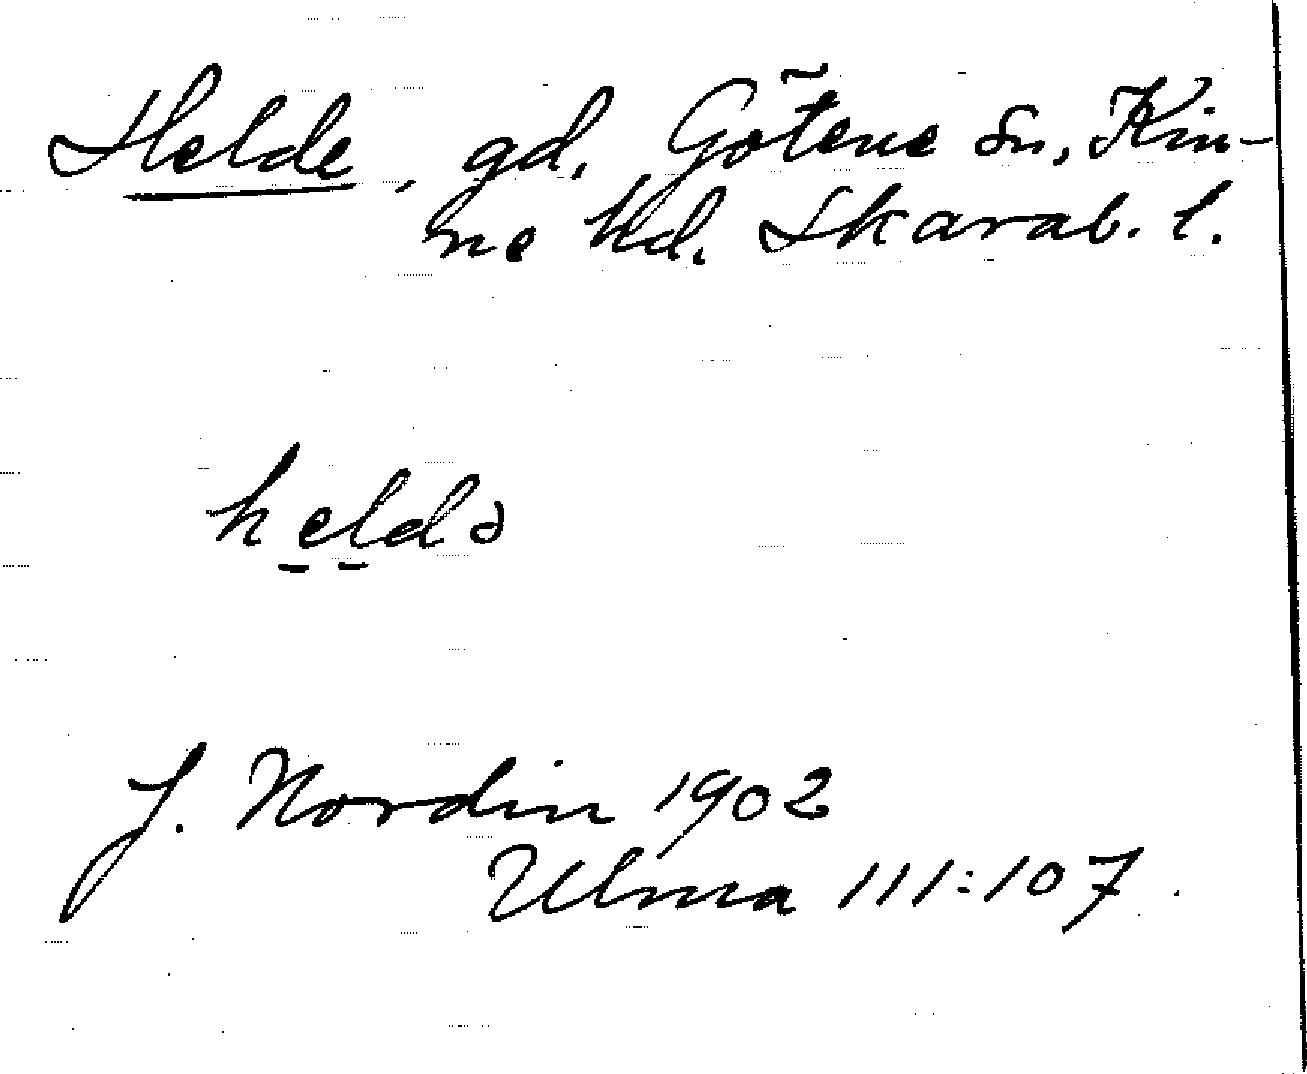 Helde, gd. Götene sn, Kin-
ne hd. Skarab. l.
heldə
J. Nordin 1902
Ulma 111:107.